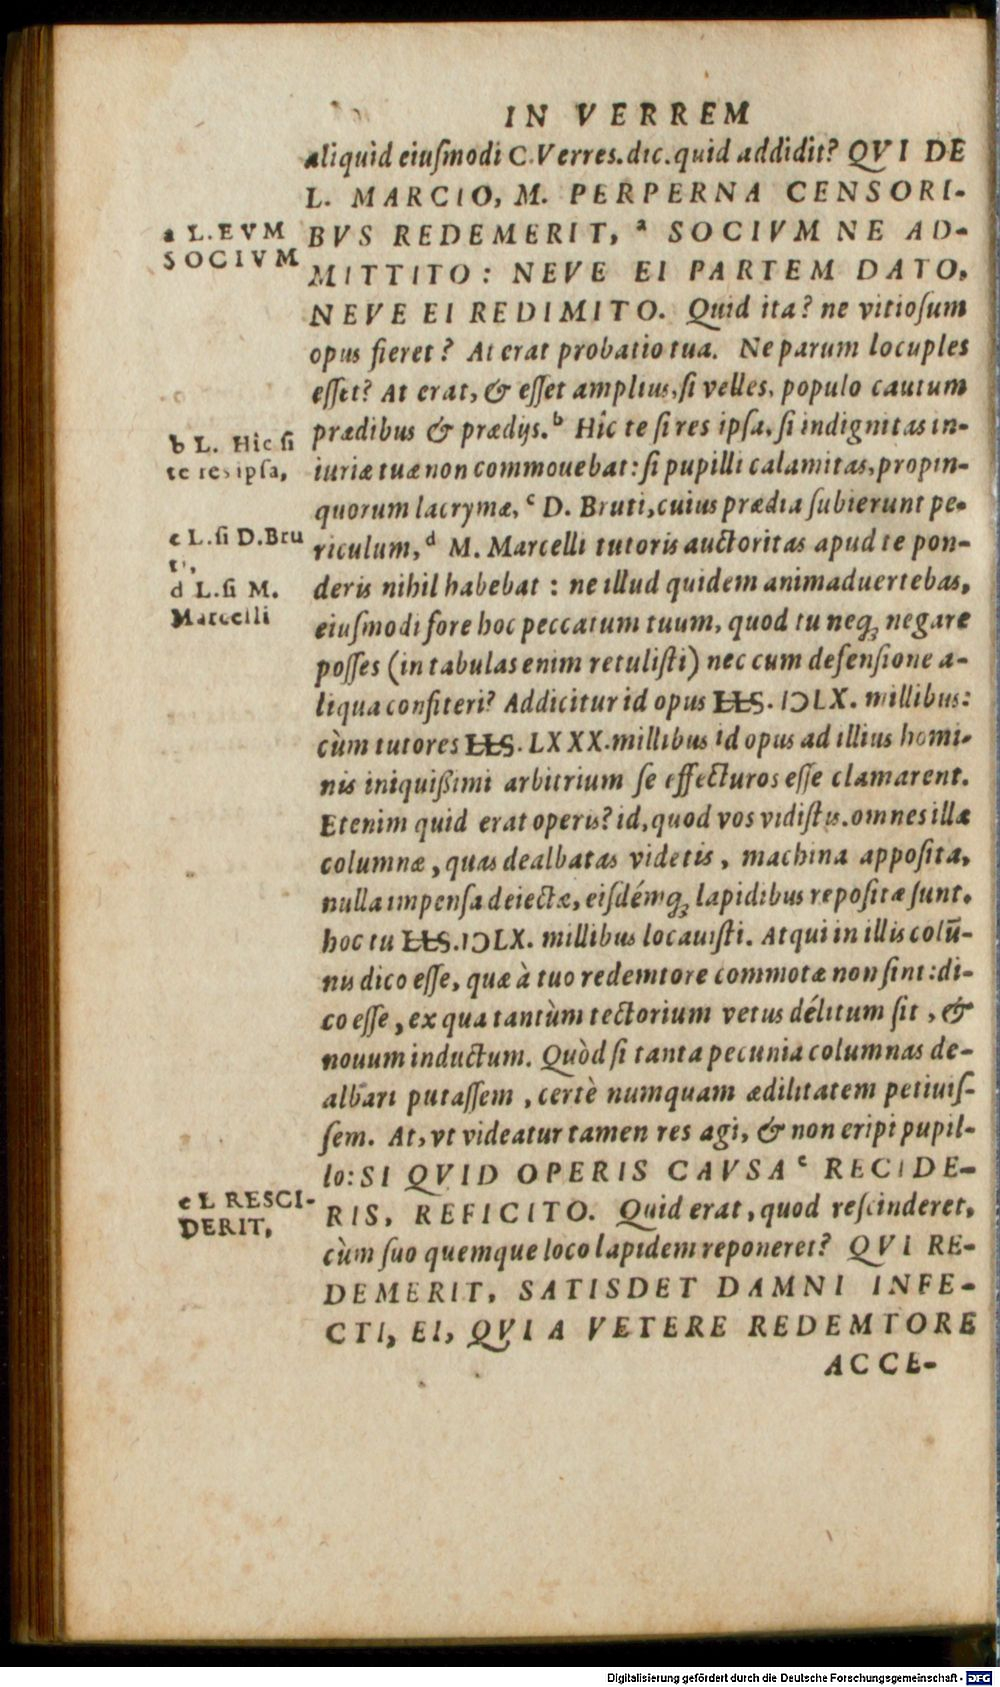 IN VERREM
aliquid eiuſmodi C.Verres.dic.quid addidit? QVI DE
L. MARCIO, M. PERPERNA CENSORI-
BVS REDEMERIT, ᵃ SOCIVM NE AD-
MITTITO: NEVE EI PARTEM DATO,
NEVE EI REDIMITO. Quid ita? ne vitioſum
opus fieret? At erat probatio tua. Ne parum locuples
eſſet? At erat, & eſſet amplius, ſi velles, populo cautum
prædibus & prædijs.ᵇ Hîc te ſi res ipſa, ſi indignitas in-
iuriæ tuæ non commouebat: ſi pupilli calamitas, propin-
quorum lacrymæ, ᶜ D. Bruti, cuius prædia ſubierunt pe-
riculum, ᵈ M. Marcelli tutoris auctoritas apud te pon-
deris nihil habebat : ne illud quidem animaduertebas,
eiuſmodi fore hoc peccatum tuum, quod tu neq; negare
poſſes (in tabulas enim retuliſti) nec cum defenſione a-
liqua confiteri? Addicitur id opus HS. IƆLX. millibus:
cùm tutores HS. LXXX. millibus id opus ad illius homi-
nis iniquißimi arbitrium ſe effecturos eſſe clamarent.
Etenim quid erat operis? id, quod vos vidiſtis. omnes illæ
columnæ, quas dealbatas videtis, machina appoſita,
nulla impenſa deiectæ, eiſdémq; lapidibus repoſitæ ſunt.
hoc tu HS. IƆLX. millibus locauiſti. Atqui in illis colū-
nis dico eſſe, quæ à tuo redemtore commotæ non ſint: di-
co eſſe, ex qua tantùm tectorium vetus délitum ſit, &
nouum inductum. Quòd ſi tanta pecunia columnas de-
albari putaſſem, certè numquam ædilitatem petiuiſ-
ſem. At, vt videatur tamen res agi, & non eripi pupil-
lo: SI QVID OPERIS CAVSA ᵉ RECIDE-
RIS, REFICITO. Quid erat, quod reſcinderet,
cùm ſuo quemque loco lapidem reponeret? QVI RE-
DEMERIT, SATISDET DAMNI INFE-
CTI, EI, QVI A VETERE REDEMTORE
ACCE-
a L. EVM
SOCIVM
b L. Hîc ſi
te res ipſa,
c L. ſi D. Bru
ti,
d L. ſi M.
Marcelli
e L RESCI-
DERIT,
Digitalisierung gefördert durch die Deutsche Forschungsgemeinschaft - DFG